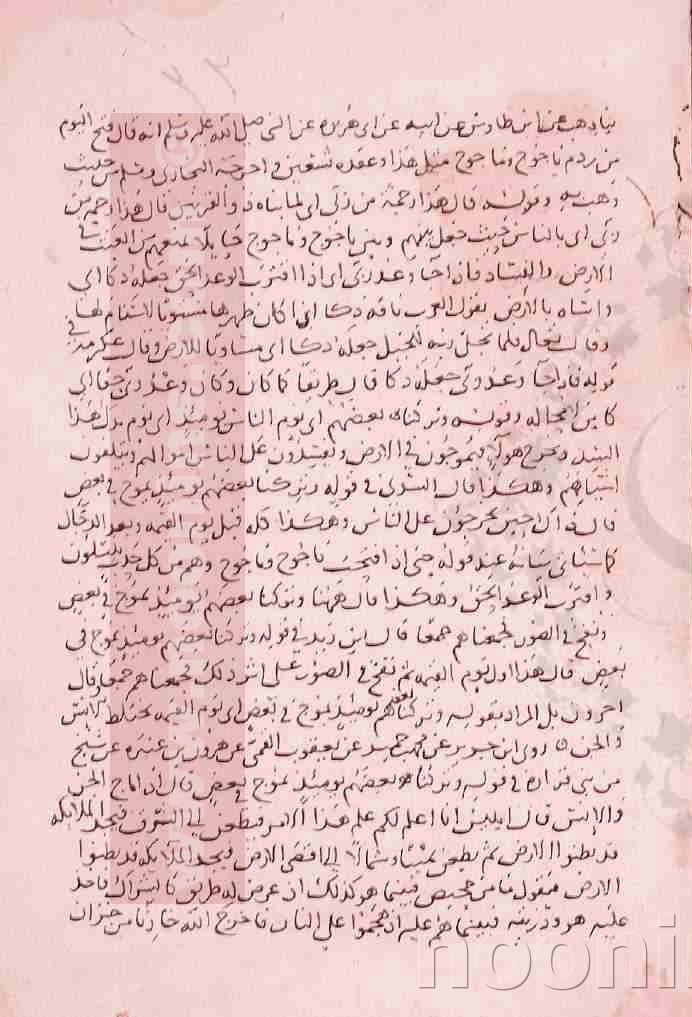 ثنا وهب عن ابن طاوس عن ابيه عن ابي هريرة عن النبي صلى الله عليه وسلم انه قال فتح اليوم
من ردم ياجوج وماجوج مثل هذا وعقد تسعين واخرجه البخاري ومسلم من حديث
وهب به وقوله قال هذا رحمة من ربي اي لما بناه ذو القرنين قال هذا رحمة من
ربي اي بالناس حيث جعل بينهم وبين ياجوج وماجوج حايلا يمنعهم من العيث في
الارض والفساد فاذا جا وعد ربي اي اذا اقترب الوعد الحق جعله دكا اي
واساه بالارض يقول العرب ناقة دكا اذا كان ظهرها مستويا لا سنام لها
وقال تعالى فلما تجلى ربه للجبل جعله دكا اي مساويا للارض وقال عكرمة في
قوله فاذا جا وعد ربي جعله دكا قال طريقا كما كان وكان وعد ربي حقا اي
كاين لا محاله وقوله وتركنا بعضهم اي يوم الناس يومئذ اي يوم يدك هذا
السد ويخرج هولا فيموجون في الارض ويفسدون على الناس اموالهم ويتلفون
اشياهم وهكذا قال السدي في قوله وتركنا بعضهم يومئذ يموج في بعض
قال ذاك حين يخرجون على الناس وهكذا كله قبل يوم القيمه وبعد الدجال
كما سياتي بيانه عند قوله حتى اذا فتحت ياجوج وماجوج وهم من كل حدب ينسلون
واقترب الوعد الحق وهكذا قال ههنا وتركنا بعضهم يومئذ يموج في بعض
ونفخ في الصور فجمعناهم جمعا قال ابن زيد في قوله وتركنا بعضهم يومئذ يموج في
بعض قال هذا اول يوم القيمه ثم نفخ في الصور على اثر ذلك فجمعناهم جمعا وقال
اخرون بل المراد بقوله وتركنا بعضهم يومئذ يموج في بعض اي يوم القيمه يختلط الانس
والجن روى ابن جرير عن محمد بن حميد عن يعقوب القمي عن هرون بن عنترة عن شيخ
من بني فزارة في قوله وتركنا بعضهم يومئذ يموج في بعض قال اذا ماج الجن
والانس قال ابليس انا اعلم لكم علم هذا الامر فيظعن الى المشرق فيجد الملايكه
قد بطنوا الارض ثم يظعن يمينا وشمالا الى اقصى الارض فيجد الملايكه قد بطنوا
الارض فيقول ما من محيص فبينما هو كذلك اذ عرض له طريق كالشراك فاخذ
عليه هو وذريته فبينما هم عليه اذ هجموا على النار فاخرج الله خازنا من خزان